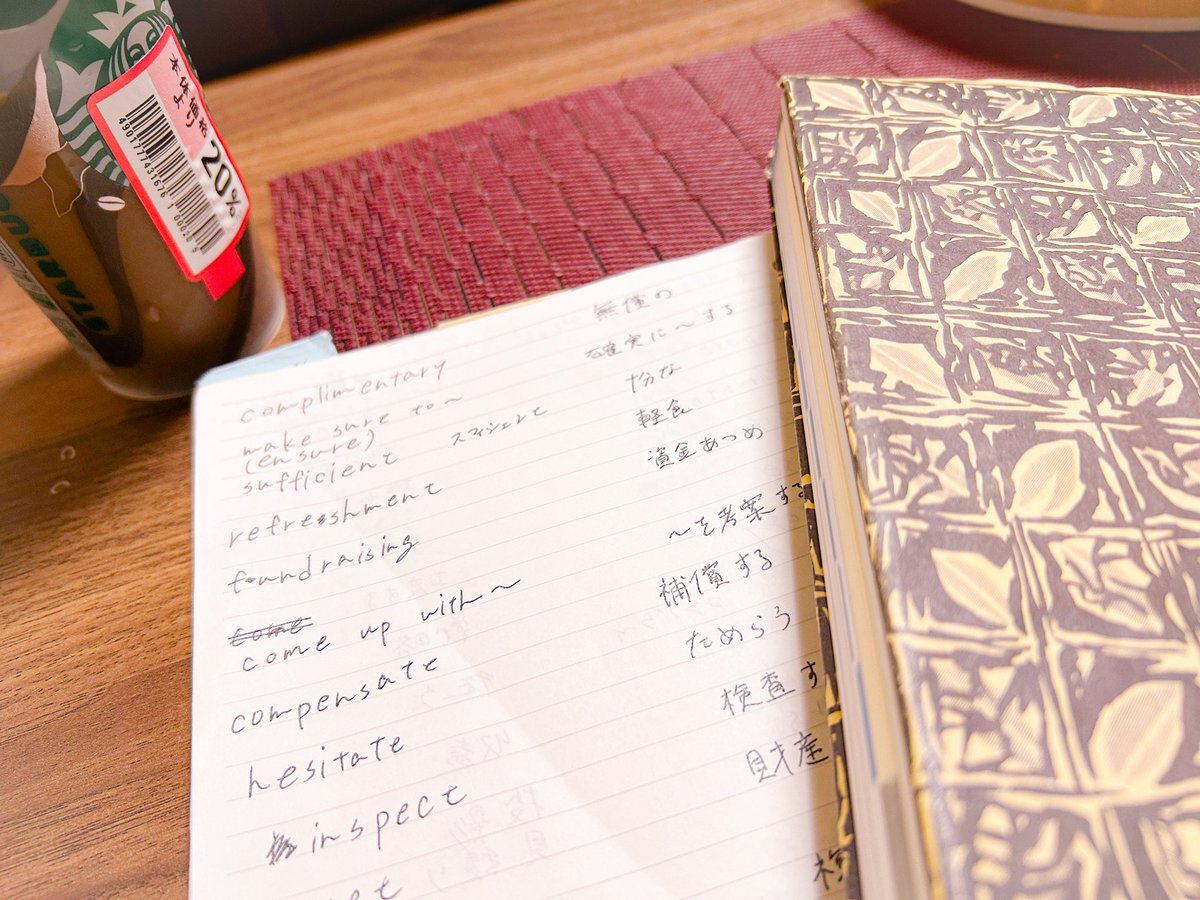 本体価格より
20%
4901777431676 1
complimentary 無償の
make sure to~ 確実に~する
(ensure)
sufficient スフィシェント 十分な
refreshment 軽食
fundraising 資金あつめ
come
come up with~ ~を考案する
compensate 補償する
hesitate ためらう
inspect 検査す
et 財産